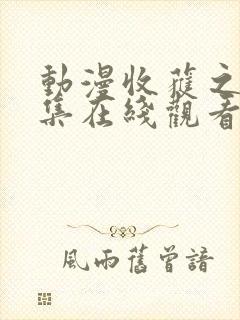 動漫收蓷之
集在綫觀看
風雨舊曾諳